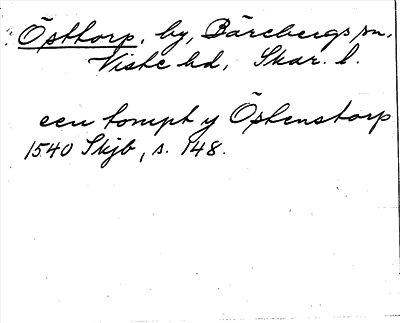 Östtorp, by, Bärebergs sn,
Viste hd, Skar. l.
een tompt y Östenstorp
1540 Stjb, s. 148.